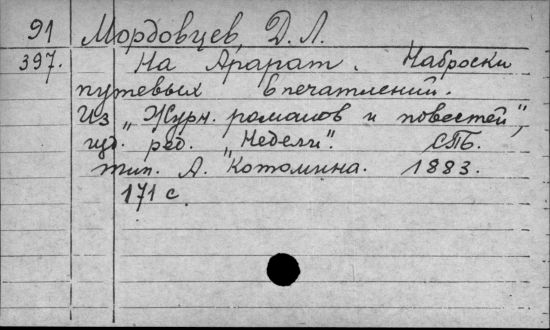 91 Мордовцев, Д. Л.
397. На Арарат. Наброски
путевых впечатлений.
Из „Журн. романов и повестей",
изд. ред. „Недели". СПБ.
тип. А. Котомина. 1883.
171 с.